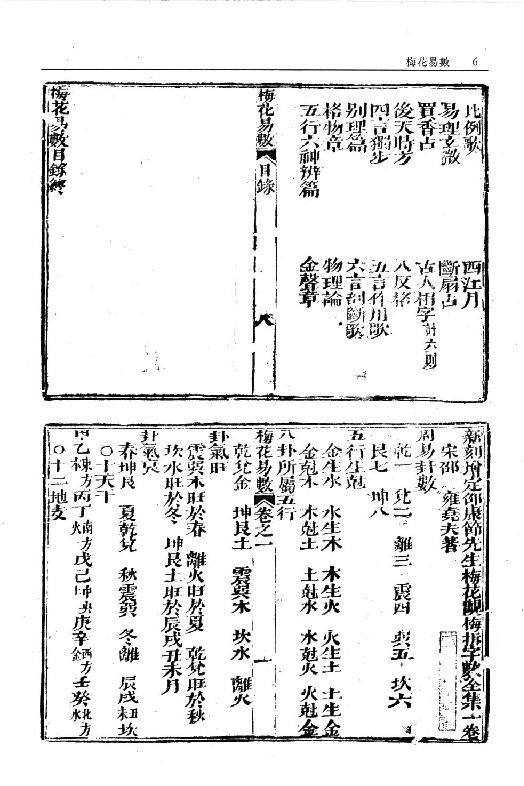 梅花易數 6
比例歌 西江月
易理玄微 斷扇占
買香占 古人相字計六則
後天時方 八反格
四言獨步 五言作用歌
別理篇 六言剖斷歌
格物章 物理論
五行六神辨篇 金聲章
梅花易數 目錄 八
梅花易數目錄終
新刻增定邵康節先生梅花觀梅拆字數全集一卷
宋邵 雍堯夫著
周易卦數
乾一 兌二 離三 震四 巽五 坎六
艮七 坤八
五行生剋
金生水 水生木 木生火 火生土 土生金
金剋木 木剋土 土剋水 水剋火 火剋金
八卦所屬五行
梅花易數 卷之一 一
乾兌金 坤艮土 震巽木 坎水 離火
卦氣旺
震巽木旺於春 離火旺於夏 乾兌旺於秋
坎水旺於冬 坤艮土旺於辰戌丑未月
卦氣衰
春坤艮 夏乾兌 秋震巽 冬離 辰戌丑未坎
○十天干
甲乙東方木丙丁南方火戊己中央庚辛西方金壬癸北方水
○十二地支